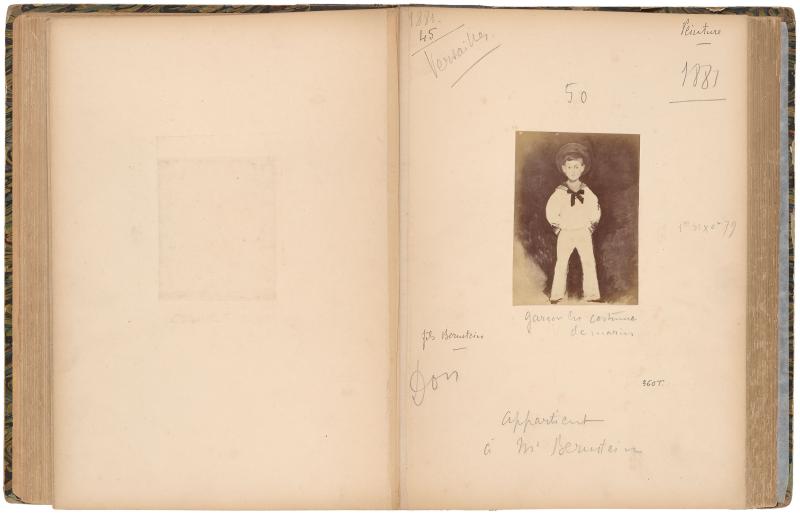 1881.
45
Versailles.
Peinture
1881
50
1m 31 x 0m 79
garçon en costume
de marin
fils Bernstein
Don
360T.
appartient
à Mr Bernstein